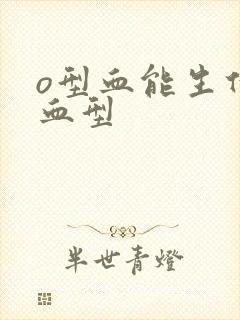 o型血能生什
血型
半世青灯